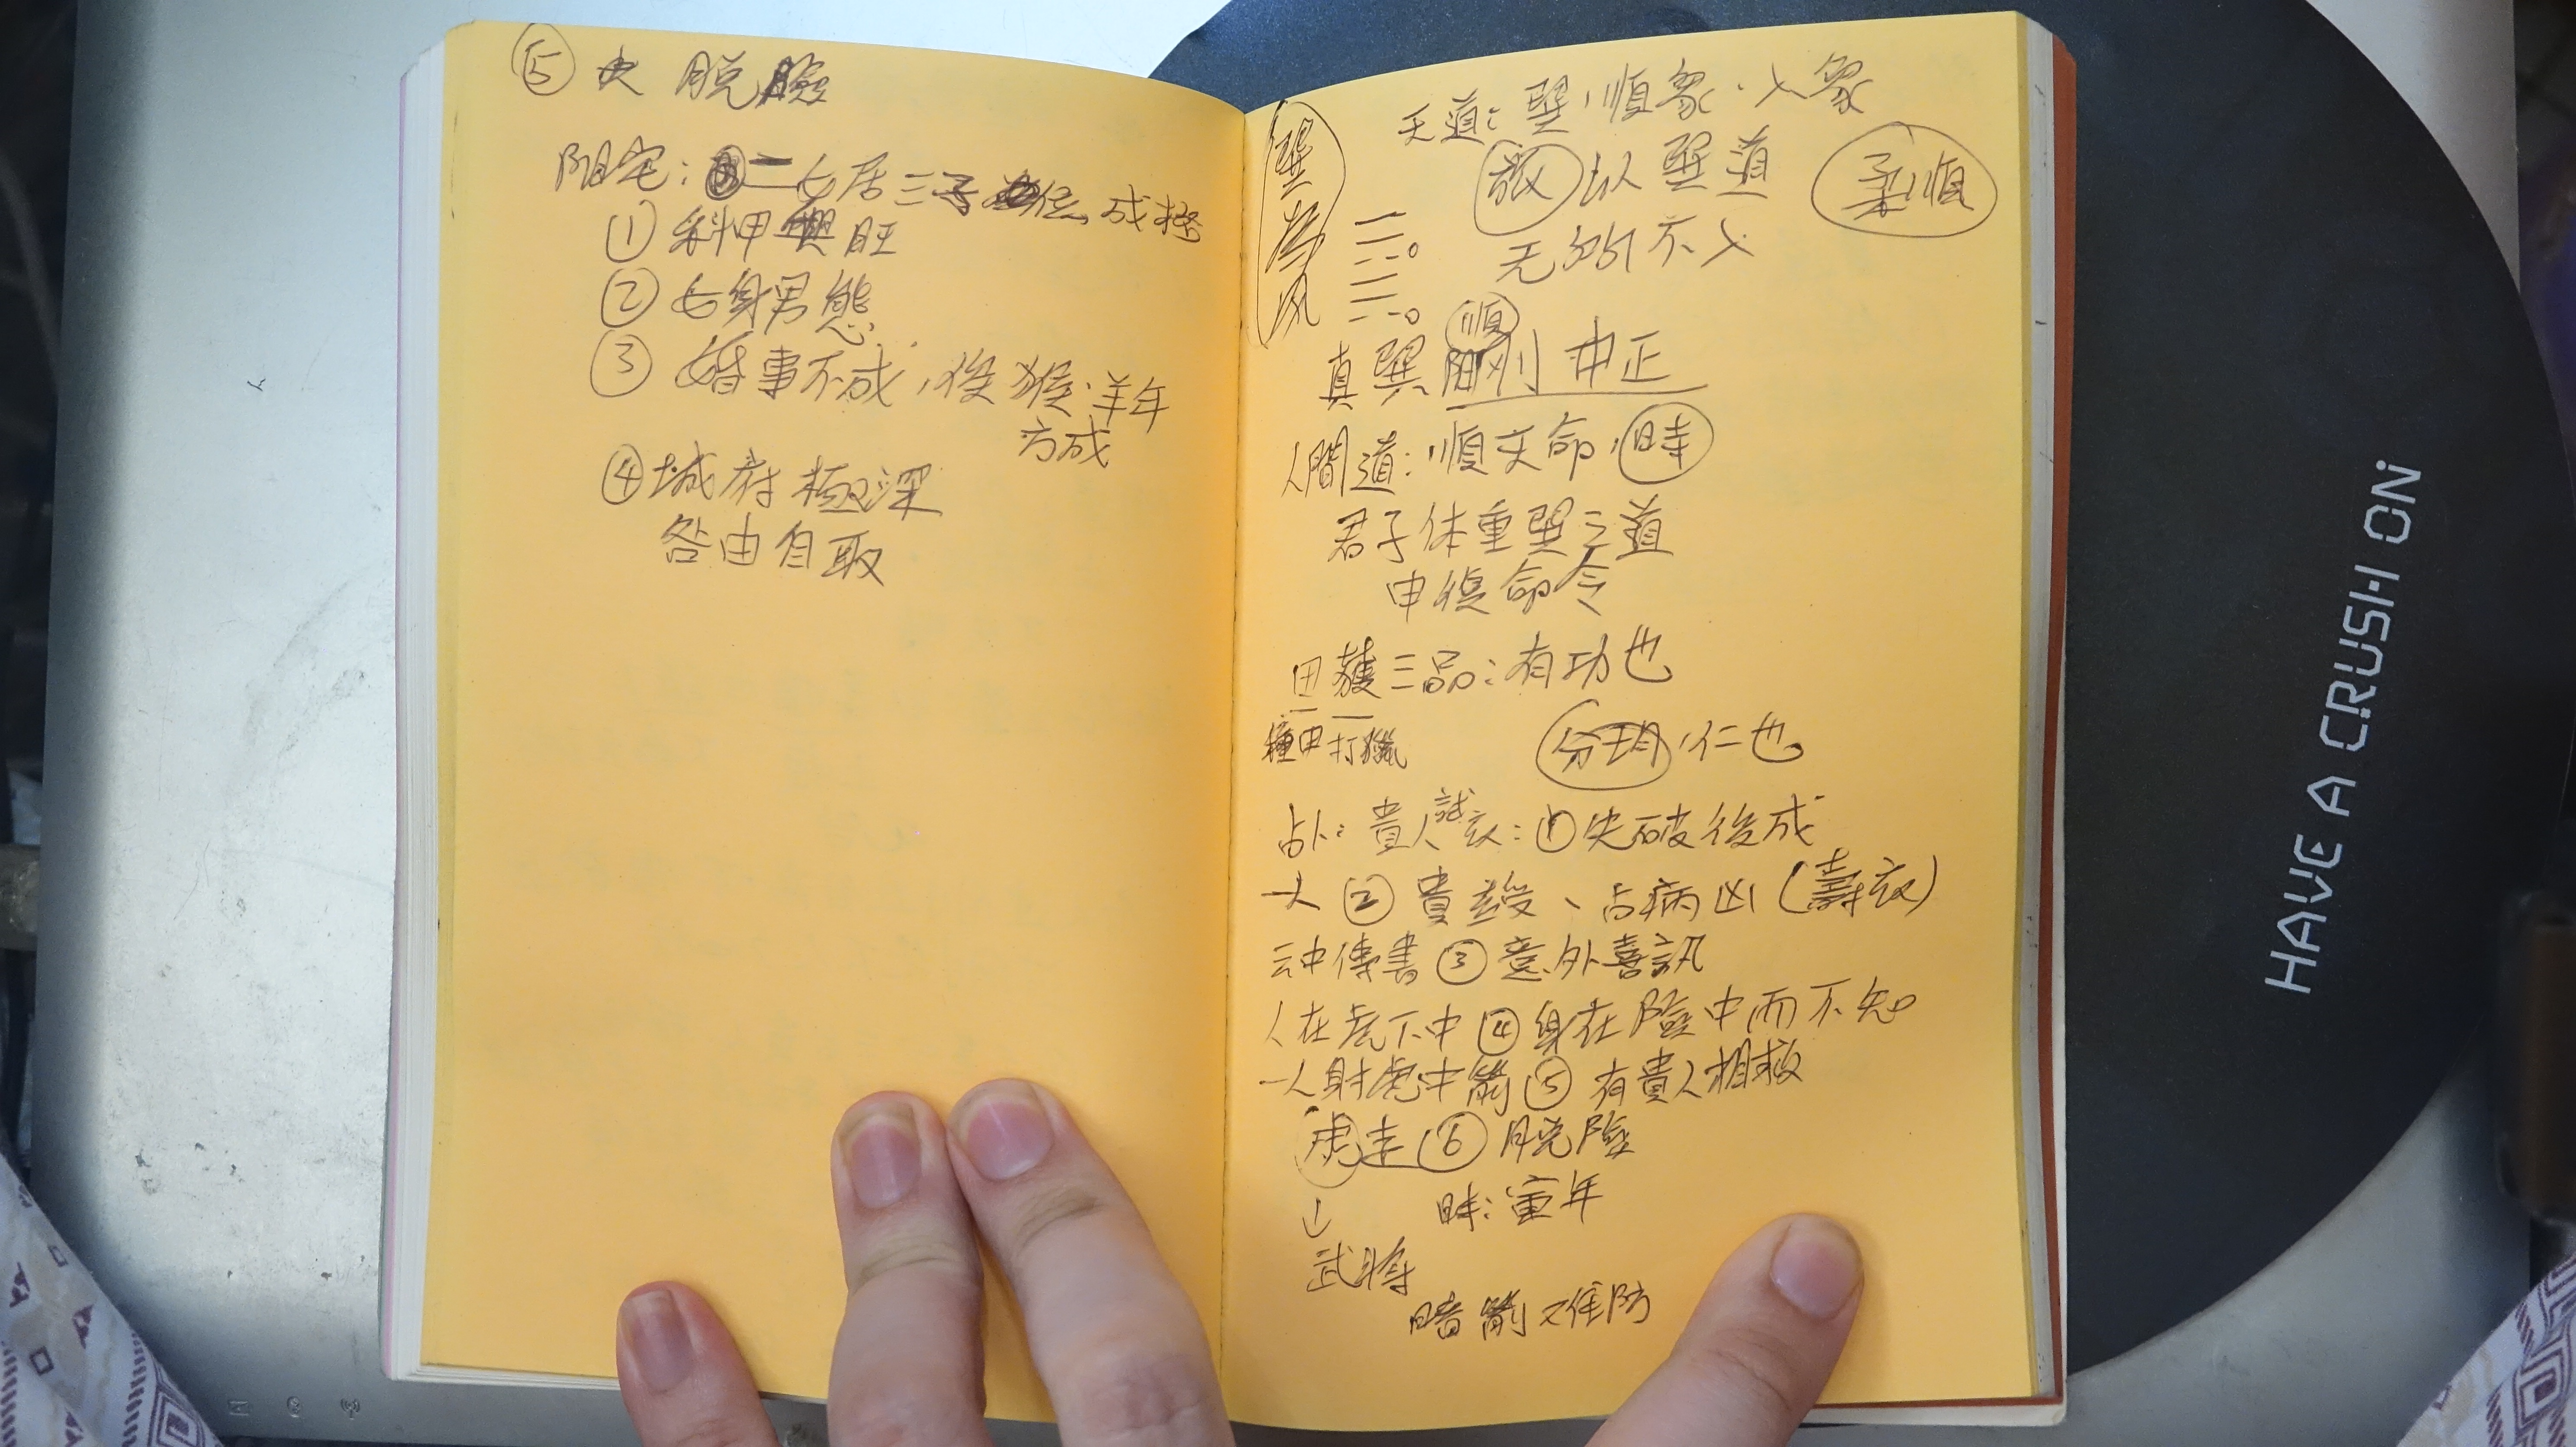 ⑤ 火 脱險
陽宅：二女居三子位 成格
① 科甲興旺
② 女身男態
③ 婚事不成，後猴·羊年
方成
④ 城府極深
咎由自取
巽為風
天道：巽，順象·入象
以巽道
柔順
无所不入
順
真巽 陽剛中正
人間道：順天命，時
君子体重巽之道
申復命令
田獲三品：有功也
種田 打獵
分均，仁也
占卜：貴人試衣：① 先破後成
一人 ② 貴、占病凶（壽衣）
云中傳書 ③ 意外喜訊
人在虎下中 ④ 身在險中而不知
一人射虎中箭 ⑤ 有貴人相救
虎走 ⑥ 脱險
↓
時：童年
武將
暗箭又難防
HAVE A CRUSH ON